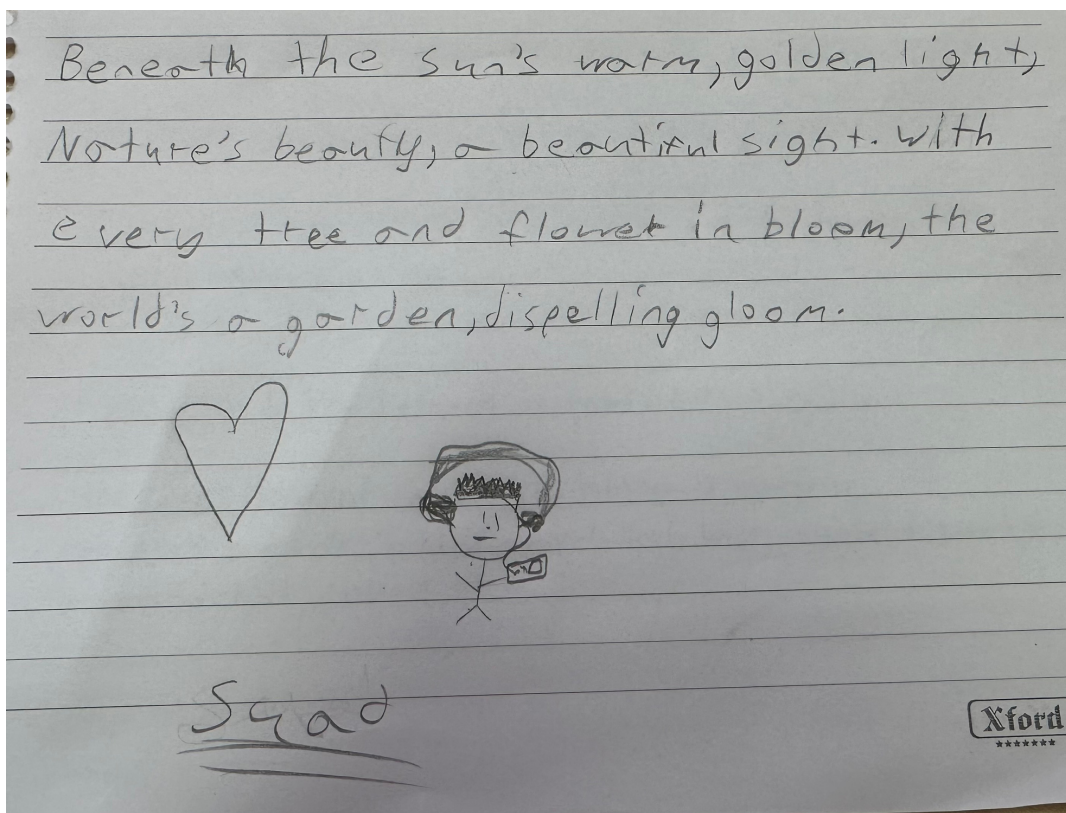 Beneath the sun's warm, golden light,
Nature's beauty, a beautiful sight. with
every tree and flower in bloom, the
world's a garden, dispelling gloom.
Xford